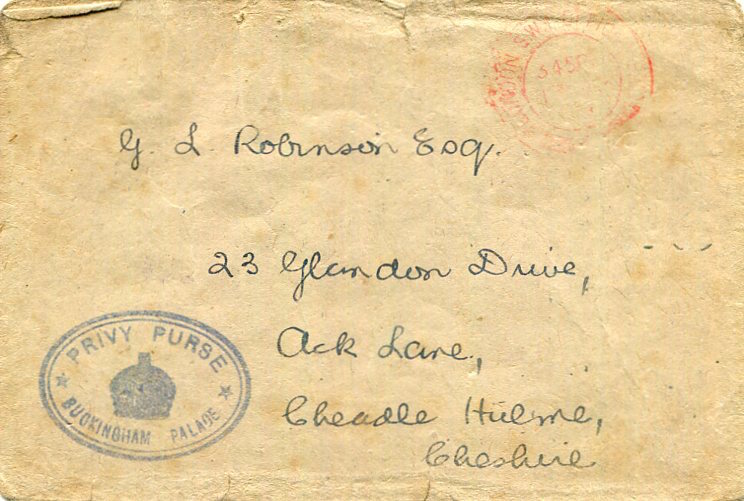 LONDON S.W.
G. L. Robinson Esq.
23 Glandon Drive,
Ack Lane,
Cheadle Hulme,
Cheshire
PRIVY PURSE
BUCKINGHAM PALACE